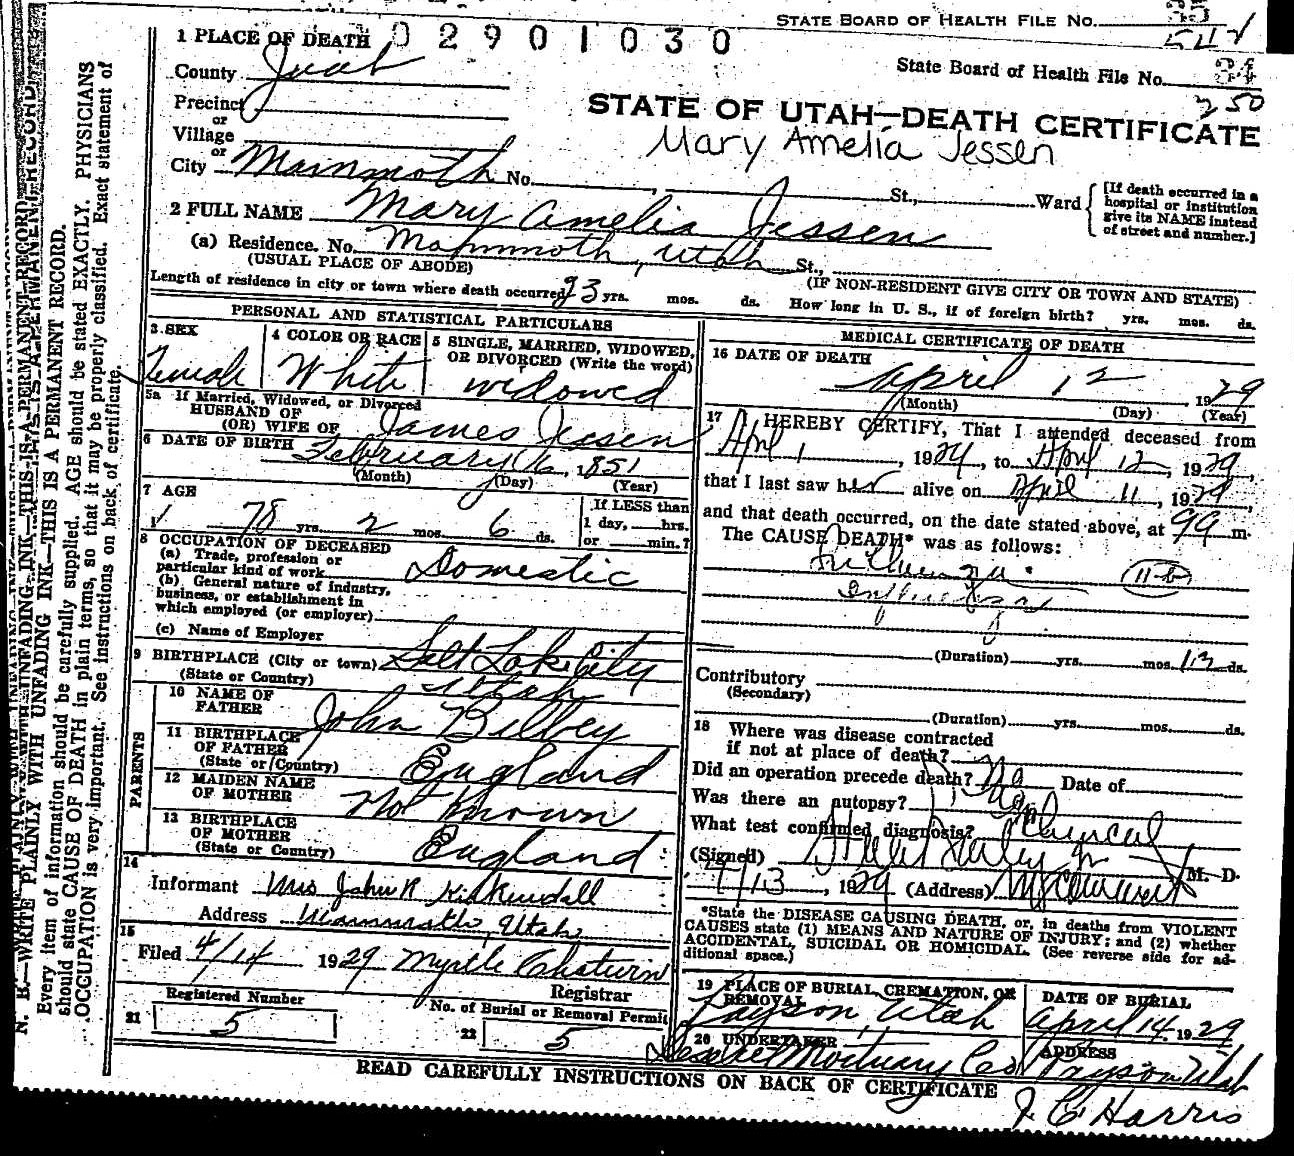 STATE BOARD OF HEALTH FILE NO.
1 PLACE OF DEATH 02901030
County Juab
State Board of Health File No. 34
250
Precinct
or
Village
or
City Mammoth No. St., Ward
STATE OF UTAH—DEATH CERTIFICATE
Mary Amelia Jessen
[If death occurred in a hospital or institution give its NAME instead of street and number.]
2 FULL NAME Mary Amelia Jessen
(a) Residence. No. Mammoth, Utah St.,
(USUAL PLACE OF ABODE) (IF NON-RESIDENT GIVE CITY OR TOWN AND STATE)
Length of residence in city or town where death occurred 23 yrs. mos. ds. How long in U. S., if of foreign birth? yrs. mos. ds.
PERSONAL AND STATISTICAL PARTICULARS
3 SEX Female
4 COLOR OR RACE White
5 SINGLE, MARRIED, WIDOWED, OR DIVORCED (Write the word) widowed
5a If Married, Widowed, or Divorced
HUSBAND OF
(OR) WIFE OF James Jessen
6 DATE OF BIRTH February 6, 1851
(Month) (Day) (Year)
7 AGE
78 yrs. 2 mos. 6 ds.
If LESS than 1 day, hrs. or min.?
8 OCCUPATION OF DECEASED
(a) Trade, profession or particular kind of work Domestic
(b) General nature of industry, business, or establishment in which employed (or employer)
(c) Name of Employer
9 BIRTHPLACE (City or town) Salt Lake City
(State or Country) Utah
PARENTS
10 NAME OF FATHER John Bilbey
11 BIRTHPLACE OF FATHER (State or Country) England
12 MAIDEN NAME OF MOTHER Not Known
13 BIRTHPLACE OF MOTHER (State or Country) England
14
Informant Mrs John R Kirkendall
Address Mammoth, Utah
15
Filed 4/14 1929 Myrtle Chatwin
Registrar
Registered Number
21 5
No. of Burial or Removal Permit
22 5
MEDICAL CERTIFICATE OF DEATH
16 DATE OF DEATH
April 12 1929
(Month) (Day) (Year)
17 I HEREBY CERTIFY, That I attended deceased from
April 1, 1929, to April 12, 1929,
that I last saw her alive on April 11, 1929,
and that death occurred, on the date stated above, at m.
The CAUSE OF DEATH* was as follows:
Influenza 11-b
Influenza
(Duration) yrs. mos. 13 ds.
Contributory
(Secondary)
(Duration) yrs. mos. ds.
18 Where was disease contracted
if not at place of death?
Did an operation precede death? No Date of
Was there an autopsy? No
What test confirmed diagnosis? Clinical
(Signed) M. D.
4/13, 1929 (Address)
*State the DISEASE CAUSING DEATH, or, in deaths from VIOLENT
CAUSES state (1) MEANS AND NATURE OF INJURY; and (2) whether
ACCIDENTAL, SUICIDAL OR HOMICIDAL. (See reverse side for additional space.)
19 PLACE OF BURIAL, CREMATION, OR REMOVAL
Payson, Utah
DATE OF BURIAL
April 14, 1929
20 UNDERTAKER
Mortuary Co
ADDRESS
Payson Utah
READ CAREFULLY INSTRUCTIONS ON BACK OF CERTIFICATE
J. C. Harris
N. B.—WRITE PLAINLY WITH UNFADING INK—THIS IS A PERMANENT RECORD.
Every item of information should be carefully supplied. AGE should be stated EXACTLY. PHYSICIANS
should state CAUSE OF DEATH in plain terms, so that it may be properly classified. Exact statement of
OCCUPATION is very important. See instructions on back of certificate.